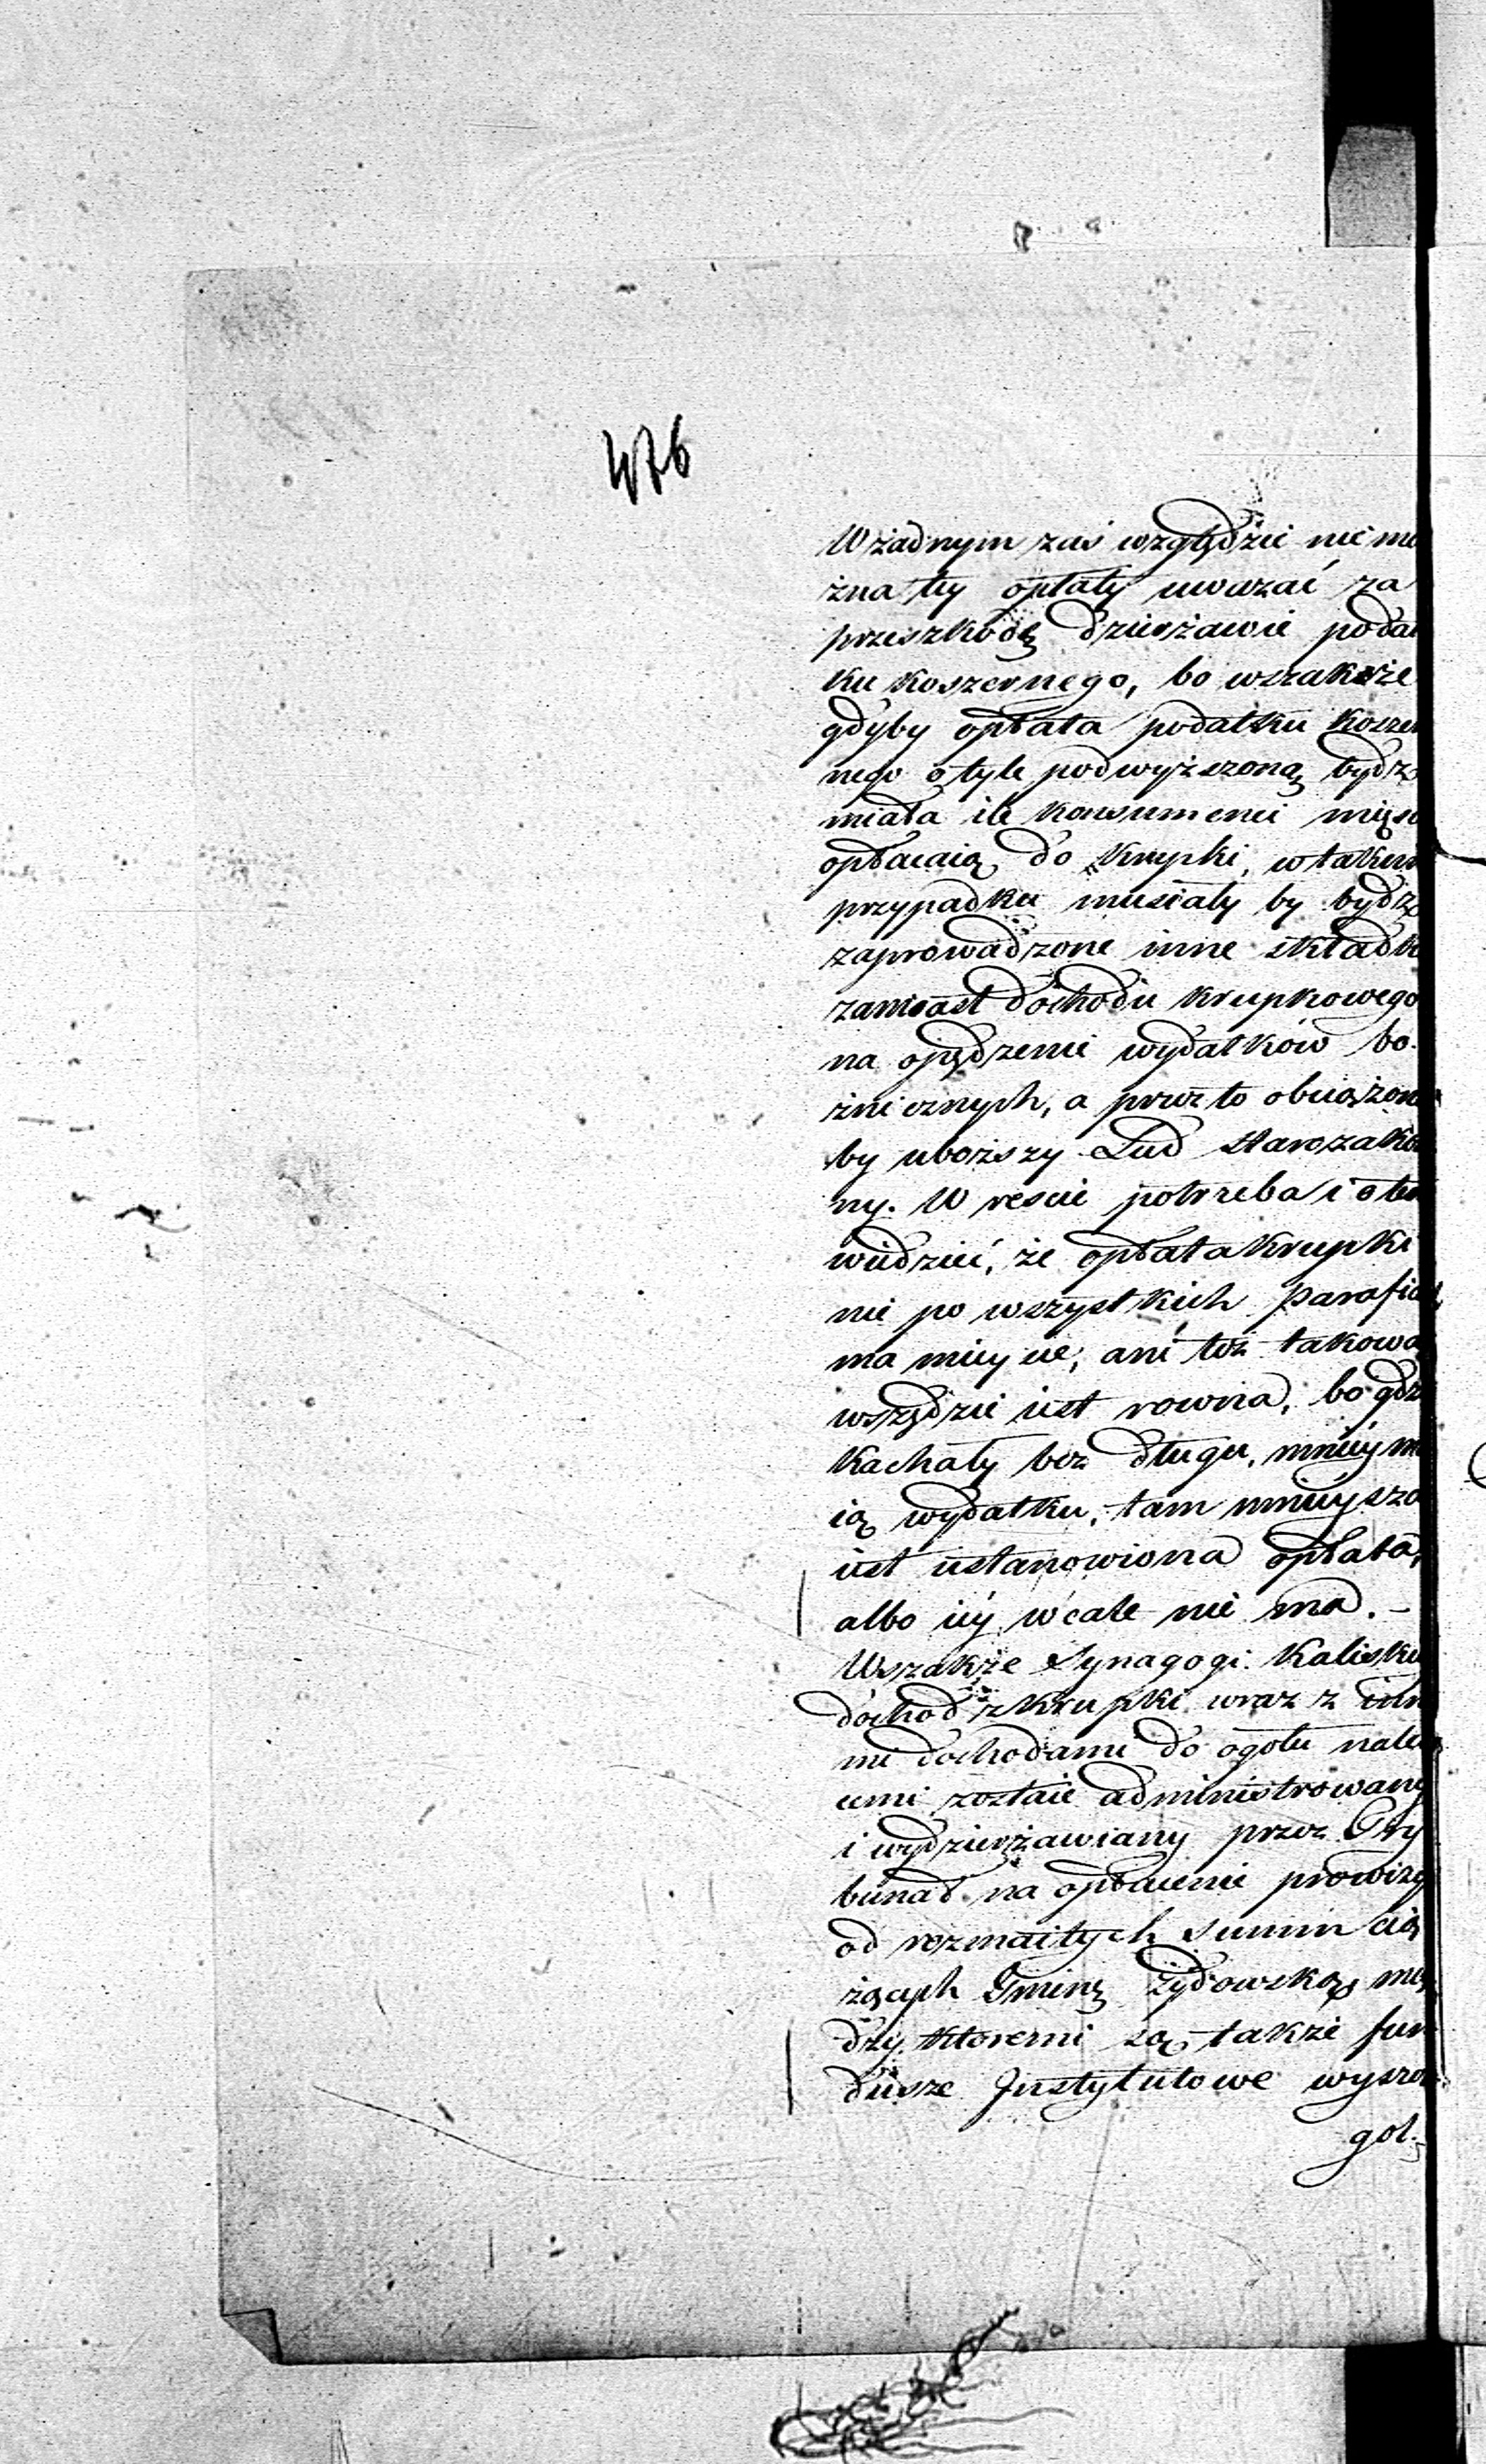 476
W żadnym zaś względzie nie mo
żna tey opłaty uważać za
przeszkodę dzierżawie podat
ku koszernego, bo wszakże
gdyby opłata podatku koszer
nego o tyle podwyższoną bydź
miała ile konsumenci mięsa
opłacaią do krupki, w takim
przypadku musiały by bydź
zaprowadzone inne składki
zamiast dochodu krupkowego
na opędzenie wydatków bo-
żnicznych, a przez to obciążono
by uboższy Lud starozakon
ny. W reście potrzeba i o tem
wiedzieć, że opłata krupki
nie po wszystkich Parafiach
ma mieysce, ani też takowa
wszędzie iest rowna, bo gdzie
Kachały bez długu, mniey ma
ią wydatku, tam mnieysza
iest ustanowiona opłata,
albo iey wcale nie ma. –
Wszakże Synagogi Kaliskiey
dochod z krupki wraz z inne
mi dochodami do ogołu należą
cemi zostaie administrowany
i wydzierżawiany przez Try
bunał na opłacenie prowizyi
od rozmaitych summ cią
żących Gminę żydowską, mię
dzy ktoremi są także fun
dusze Instytutowe wyszcze
gol-